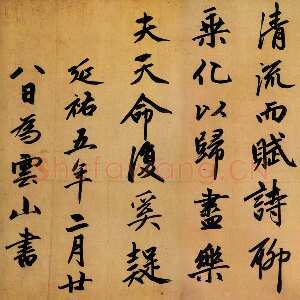 清流而賦詩聊
乘化以歸盡樂
夫天命復奚疑
延祐五年二月廿
八日為雲山書